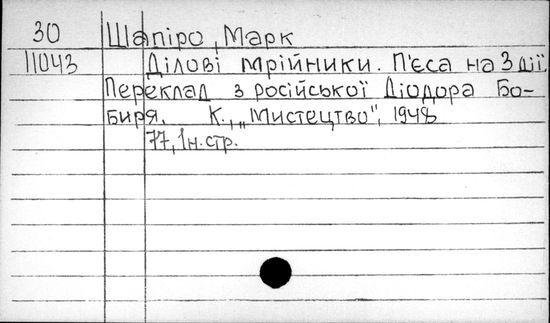 30 Шапіро, Марк
11043 Ділові мрійники. П'єса на 3 дії.
Переклад з російської Діодора Бо-
биря. К., „Мистецтво", 1948
77, 1н. стр.